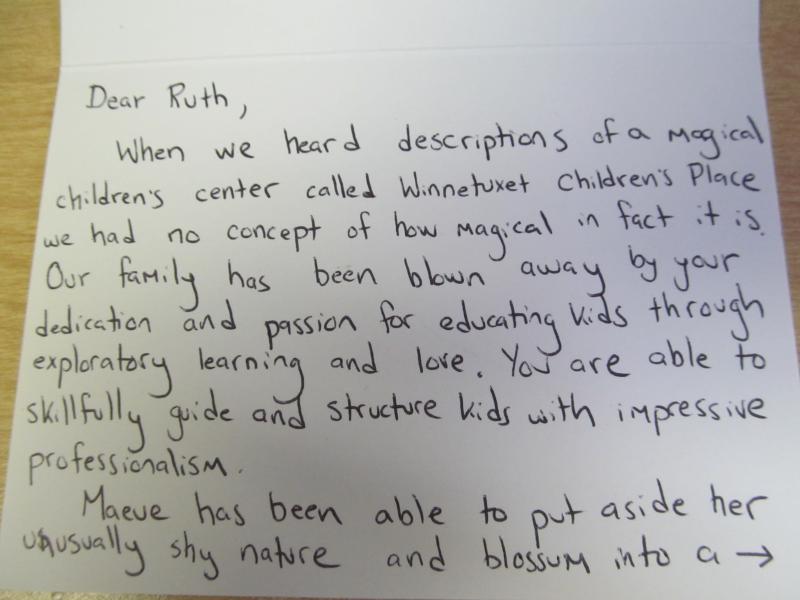 Dear Ruth,
When we heard descriptions of a magical
children's center called Winnetuxet Children's Place
we had no concept of how magical in fact it is.
Our family has been blown away by your
dedication and passion for educating kids through
exploratory learning and love. You are able to
skillfully guide and structure kids with impressive
professionalism.
Maeve has been able to put aside her
unusually shy nature and blossum into a →